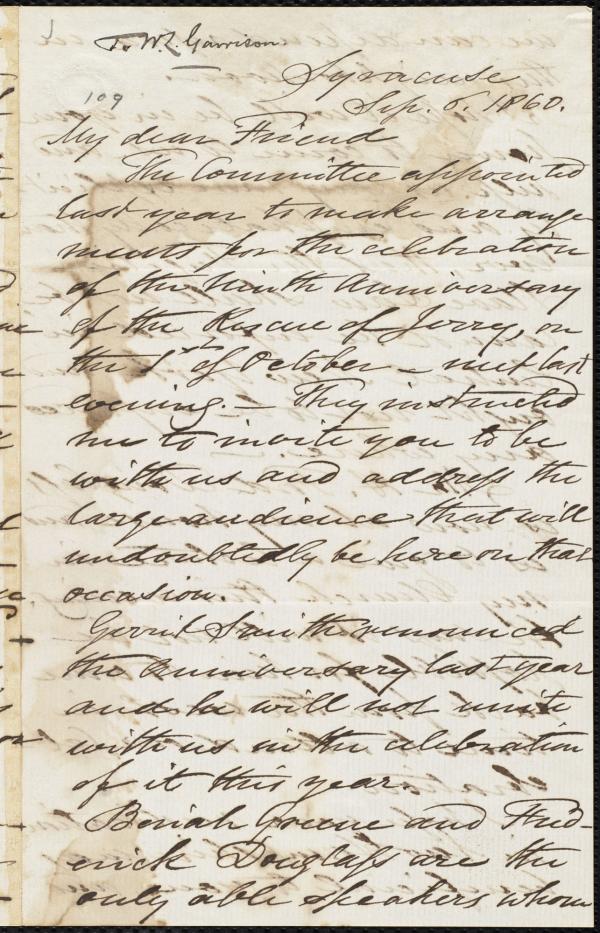 To W. L. Garrison.
109
Syracuse
Sep. 6. 1860.
My dear Friend
The Committee appointed
last year to make arrange
ments for the celebration
of the Ninth Anniversary
of the Rescue of Jerry, on
the 1st of October – met last
evening. – They instructed
me to invite you to be
with us and address the
large audience that will
undoubtedly be here on that
occasion.
Gerrit Smith renounced
the Anniversary last year
and he will not unite
with us in the celebration
of it this year.
Beriah Greene and Fred-
erick Douglass are the
only able speakers whom